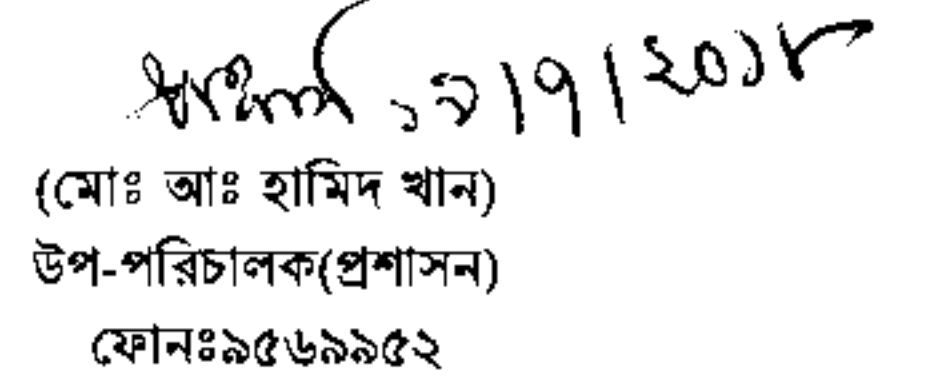 ১৯/৭/২০১৮
(মোঃ আঃ হামিদ খান)
উপ-পরিচালক(প্রশাসন)
ফোনঃ৯৫৬৯৯৫২